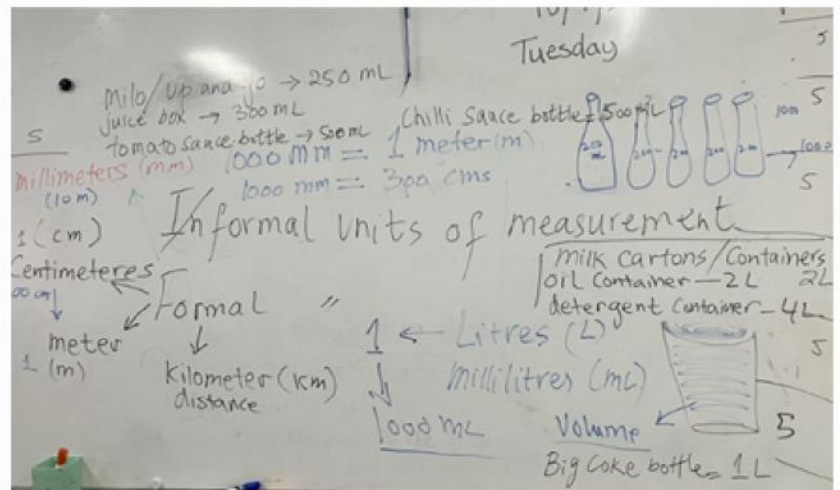 Tuesday
milo/up and go → 250 mL
juice box → 300 mL
tomato sauce bottle → 500 mL
Chilli Sauce bottle = 500 mL
1000 mm = 1 meter (m)
1000 mm = 300 cms
millimeters (mm)
(10 m)
1 (cm)
Centimeteres
meter
1 (m)
Informal units of measurement
Formal "
Kilometer (Km)
distance
milk cartons/Containers
2L
oil Container — 2 L
detergent Container - 4L
1 ← Litres (L)
millilitres (mL)
1000 mL
Volume
Big Coke bottle = 1 L
5
5
5
5
5
5
5